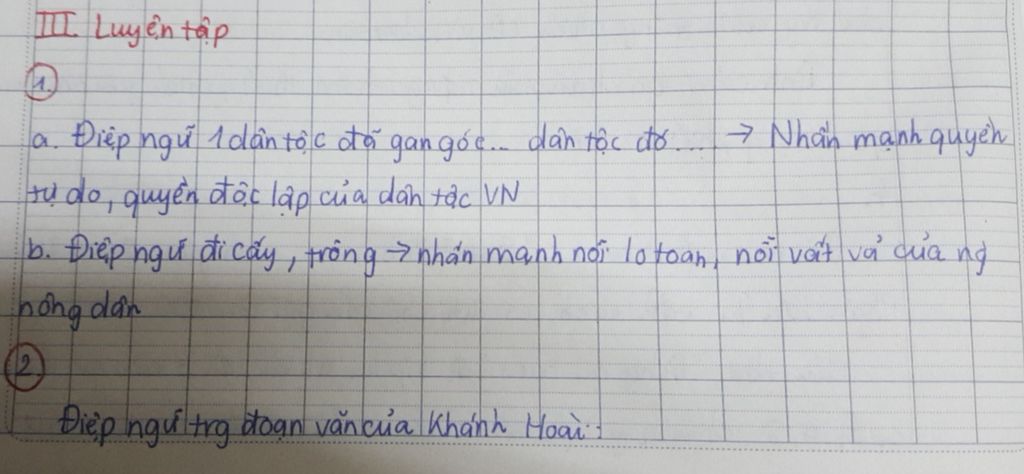 III Luyện tập
1.
a. Điệp ngữ 1 dân tộc đã gan góc... dân tộc đó... → Nhấn mạnh quyền
tự do, quyền độc lập của dân tộc VN
b. Điệp ngữ đi cấy, trông → nhấn mạnh nỗi lo toan, nỗi vất vả của ng
nông dân
2
Điệp ngữ trg đoạn văn của Khánh Hoài: